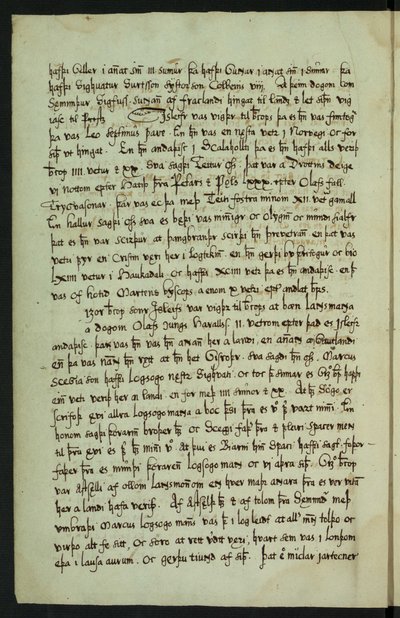 hafþi Geller i anat sin iii sumur þa hafþi Gunar i anat sin i sumar þa
hafþi Sighuatur Surtsson systorson Colbeins viij. A þeim dogom com
Semunþur Sigfuss. sunan af Fraclandi hingat til landz & let siþan vig
iasc til Prests
Isleifr vas vigþr til byscops þa es hann vas fimtogr
þa vas Leo septimus pave. En hann vas en nesta vetr i Norvegi oc for
siþan ut hingat. En hann andaþisc i Scalaholti þa es hann hafþi alls verit
byscop iiii vetr & xx. Sva sagþi Teitur oss. Þat vas a Drottins deige
vi nottom epter hatiþ þeira Petars & Pols lxxx. vetra epter Olafs fall
Tryggvasonar. Þar vas ec þa meþ Teiti fostra minom xii vetra gamall
En Hallur sagþi oss sva es bæþi vas minnigr oc olyginn oc mundi sialfr
þat es hann vas scirþur at Þangbrandr scirþi hann prevetran en þat vas
vetri fyrr en Cristni veri her i log tekin. en hann gerþi bu þritogr oc bio
lxiiii vetur i Haukadali oc hafþi xciiii vetra þa es hann andaþisc en þat
vas of hotiþ Martens byscops a enom x vetri eptir andlat Isleifs byscops.
Gizor byscop sonr Isleifs var vigþr til byscops at bæn landsmanna
a dogom Olafs kunungs Haralldssonar ii vetrom epter þad es Isleifr
andaþisc. þar vas hann vas hann annan her a landi, en annan a Gautlandi
en þa vas nafn hans rett at hann het Gisroþr. sva sagdi hann oss. Marcus
Sceggia son hafþi logsogo nestr Sighvati. oc toc þat sumar es Gizor byscop hafþi
einn vetr verit her a landi en for meþ iiii sumor & xx. At hans sogo er
scrifoþ ævi allra logsogomanna a boc þessi þeira es voro fyrir vart minni. En
honom sagþi Þorarinn broþer hans oc Sceggi faþer þeira & fleiri spaker menn
til þeira ævi es fyrir hans minni voro. at þvi es Biarni enn spaci hafþi sagt faþor-
faþer þeira es mundi Þorarenn logsogo mann oc vi aþra siþan. Gizor byscop
var astselli af ollom landsmonnom en hver maþr annara þeira es ver vitim
her a landi hafa veriþ. Af astselþ hans & af tolom þeira Semundar meþ
umbraþi Marcus logsogo manns vas þat i log leidt at aller menn tolþo oc
virþo allt fe sitt, oc soro at rett virt veri, hvart sem vas i londom
eþa i lausa aurum, oc gerþu tiund af siþan. Þat ero miclar jartecner